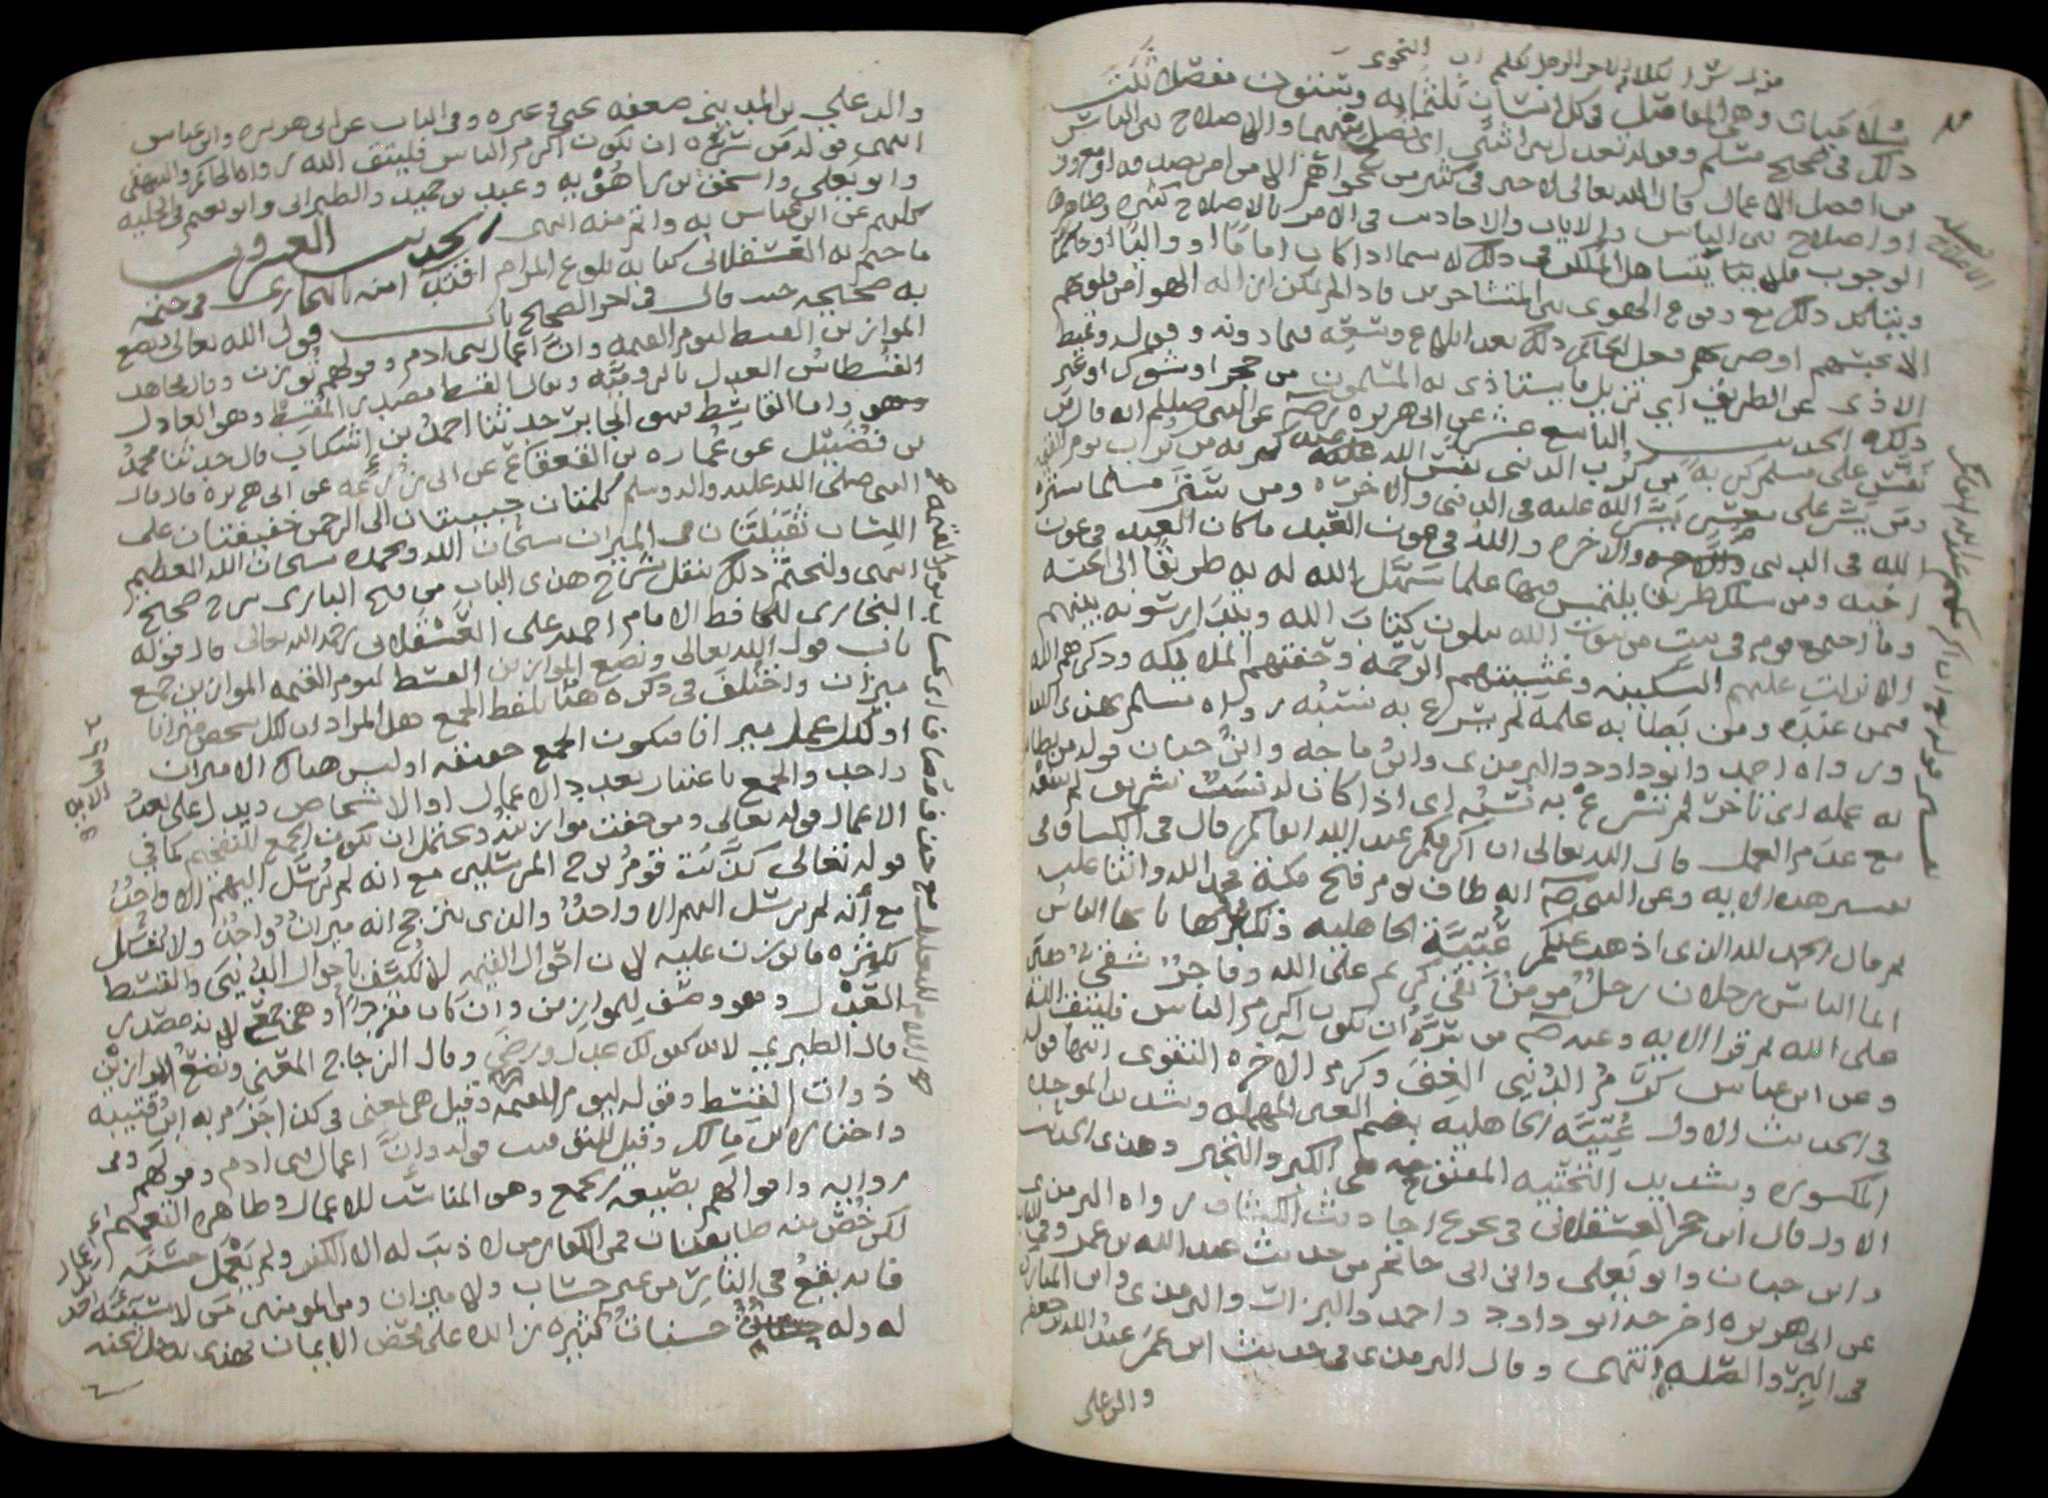 سُلاميات وهي المفاصل في كل انسان ثلثمايه وستون مفصلا ثبت
ذلك في صحيح مسلم وقوله تعدل بين اثنين اي تصلح بينهما والاصلاح بين الناس
من افضل الاعمال قال الله تعالى لا خير في كثير من نجواهم الا من امر بصدقه او معروف
او اصلاح بين الناس والايات والاحاديث في الامر بالاصلاح كثيره وظاهرها
الوجوب فلا يتساهل المكلف في ذلك لا سيما اذا كان اماما او واليا او حاكما
ويتاكد ذلك مع وقوع الهوى بين المتشاجرين فاذا لم يمكن ازاله الهوا من قلوبهم
الا بحبسهم او ضربهم فعل الحاكم ذلك بعد ابلاغ وسعه فيما دونه وقوله وتميط
الاذى عن الطريق اي تزيل ما يستاذى به المسلمون من حجر او شوك او غير
ذلك الحديث التاسع عشر عن ابي هريره رضه عن النبي صللم انه قال من
نفس على مسلم كربه من كرب الدنيا نفس الله عنه كربه من كرب يوم القيمه
ومن يسر على معسر يسر الله عليه في الدنيا والاخره ومن ستر مسلما ستره
الله في الدنيا والاخره والله في عون العبد ما كان العبد في عون
اخيه ومن سلك طريقا يلتمس فيها علما سهل الله له به طريقا الى الجنه
وما اجتمع قوم في بيت من بيوت الله يتلون كتاب الله ويتدارسونه بينهم
الا نزلت عليهم السكينه وغشيتهم الرحمه وحفتهم الملايكه وذكرهم الله
فيمن عنده ومن بطا به عمله لم يسرع به نسبه رواه مسلم بهذى اللفظ
ورواه احمد وابو داود والترمذي وابن ماجه وابن حبان قوله من بطا
به عمله اي تاخر لم يسرع به نسبه اي اذا كان له نسب شريف لم ينفعه
مع عدم العمل قال الله تعالى ان اكرمكم عند الله اتقاكم قال في الكشاف في
تفسير هذه الايه وعن النبي صم انه طاف يوم فتح مكة فحمد الله واثنا عليه
ثم قال الحمد لله الذي اذهب عنكم عُبّيّة الجاهليه وتكبرها يا ايها الناس
انما الناس رجلان رجل مومن تقي كريم على الله وفاجر شقي هين
على الله ثم قرا الايه وعنه صم من سره ان يكون اكرم الناس فليتق الله
وعن ابن عباس كرم الدنيا الغنى وكرم الاخره التقوى انتها قوله
في الحديث الاول عُبّيّة الجاهليه بضم العين المهمله وتشديد الموحده
المكسوره وتشديد التحتيه المفتوحه هي الكبر والفخر وهذى الحديث
الاول قال ابن حجر العسقلاني في تخريج احاديث الكشاف رواه الترمذي
وابن حبان وابو يعلى وابن ابي حاتم من حديث عبد الله بن عمر وفي الباب
عن ابي هريره اخرجه ابو داود واحمد والبزار والترمذي وابن المبارك
في البر والصله انتهى وقال الترمذي في حديث ابن عمر عبد الله بن جعفر
والد علي
والد علي بن المديني ضعفه يحيى وغيره وفي الباب عن ابي هريره وابن عباس
انتهى قوله من سره ان يكون اكرم الناس فليتق الله رواه الحاكم والبيهقي
وابو يعلى واسحق بن راهويه وعبد بن حميد والطبراني وابو نعيم في الحليه
كلهم عن ابن عباس به واتم منه انتهى الحديث العشرون
ما ختم به العسقلاني كتابه بلوغ المرام اقتدآ منه بالبخاري في ختمه
به صحيحه حيث قال في اخر الصحيح باب قول الله تعالى ونضع
الموازين القسط ليوم القيمه وان اعمال بني ادم وقولهم توزن وقال مجاهد
القسطاس العدل بالروميّه ويقال القسط مصدر المقسط وهو العادل
واما القاسط فهو الجاير حدثنا احمد بن اشكاب قال حدثنا محمد
بن فضيل عن عماره بن القعقاع عن ابي زرعه عن ابي هريره قال قال
النبي صلى الله عليه واله وسلم كلمتان حبيبتان الى الرحمن خفيفتان على
اللسان ثقيلتان في الميزان سبحان الله وبحمده سبحان الله العظيم
انتهى ولنختم ذلك بنقل شرح هذى الباب من فتح الباري شرح صحيح
البخاري للحافظ الامام احمد بن علي العسقلاني رحمه الله تعالى قال قوله
باب قول الله تعالى ونضع الموازين القسط ليوم القيمه الموازين جمع
ميزان واختلف في ذكره هنا بلفظ الجمع هل المراد ان لكل شخص ميزانا
او لكل عمل ميزانا فيكون الجمع حقيقه او ليس هناك الا ميزان
واحد والجمع باعتبار تعدد الاعمال او الاشخاص ويدل على تعدد
الاعمال قوله تعالى ومن خفت موازينه ويحتمل ان يكون الجمع للتفخيم كما في
قوله تعالى كذبت قوم نوح المرسلين مع انه لم يرسل اليهم الا واحد
مع أنه لم يرسل اليهم الا واحد والذي يترجح انه ميزان واحد ولا يشكل
بكثره ما يوزن عليه لان احوال القيمه لا تكيف باحوال الدنيى والقسط
العدل وهو وصف للموازين وان كان مفردا وهي جمع لانه مصدر
قال الطبري لانه كقولك عدل ورضى وقال الزجاج المعنى ونضع الموازين
ذوات القسط وقوله ليوم القيمه وقيل هي بمعنى في كذا جزم به ابن قتيبه
واختاره ابن مالك وقيل للتوقيت قوله وان اعمال بني ادم وقولهم وفي
روايه واقوالهم بصيغه الجمع وهو المناسب للاعمال وظاهره التعميم
لكن خص منه طايفتان فمن الكفار من لا ذنب له الا الكفر ولم يعمل حسنة
فانه يقع في النار من غير حساب ولا ميزان ومن المومنين من لا سيئه
له وله حسنات كثيره زايده على محض الايمان فهذى يدخل الجنه